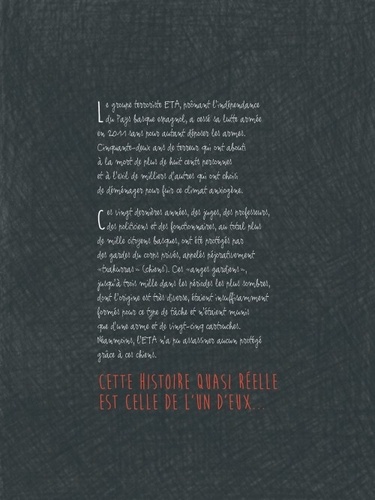 Le groupe terroriste ETA, prônant l'indépendance
du Pays basque espagnol, a cessé sa lutte armée
en 2011 sans pour autant déposer les armes.
Cinquante-deux ans de terreur qui ont abouti
à la mort de plus de huit cents personnes
et à l'exil de milliers d'autres qui ont choisi
de déménager pour fuir ce climat anxiogène.
Ces vingt dernières années, des juges, des professeurs,
des politiciens et des fonctionnaires, au total plus
de mille citoyens basques, ont été protégés par
des gardes du corps privés, appelés péjorativement
«txakurras» (chiens). Ces «anges gardiens»,
jusqu'à trois mille dans les périodes les plus sombres,
dont l'origine est très diverse, étaient insuffisamment
formés pour ce type de tâche et n'étaient munis
que d'une arme et de vingt-cinq cartouches.
Néanmoins, l'ETA n'a pu assassiner aucun protégé
grâce à ces chiens.
CETTE HISTOIRE QUASI RÉELLE
EST CELLE DE L'UN D'EUX...